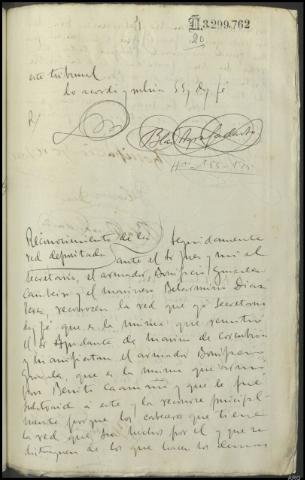 N.3.299.762
20
este tribunal
Lo acordó y rubrica SSª, doy fé
R/
Reconocimiento de la red depositada
Seguidamente
ante el Sr. Juez y mi el
Secretario, el armador, Bonifacio
Cambeiro y el marinero Belarmino Dias
Perez, reconocen la red que yo Secretario
doy fé que es la misma que remitió
el Sr. Ayudante de marina de Corcubión
y manifiestan el armador Bonifacio
que es la misma que
por Benito Caamaño y que le fue
substraida a este, la reconoce principal-
mente porque los cabeceros que tiene
la red que son hechos por el y que se
distinguen de los que hacen los demas